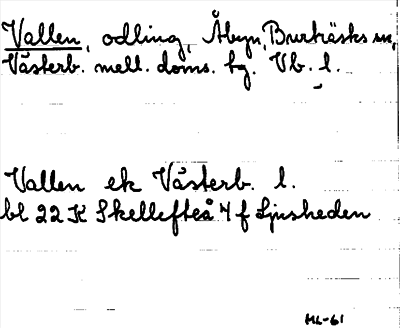 Vallen, odling, Åbyn, Burträsks sn,
Västerb. mell. doms. tg. Vb. l.
Vallen ek Västerb. l.
bl 22 K Skellefteå 4 f Ljusheden
ML-61